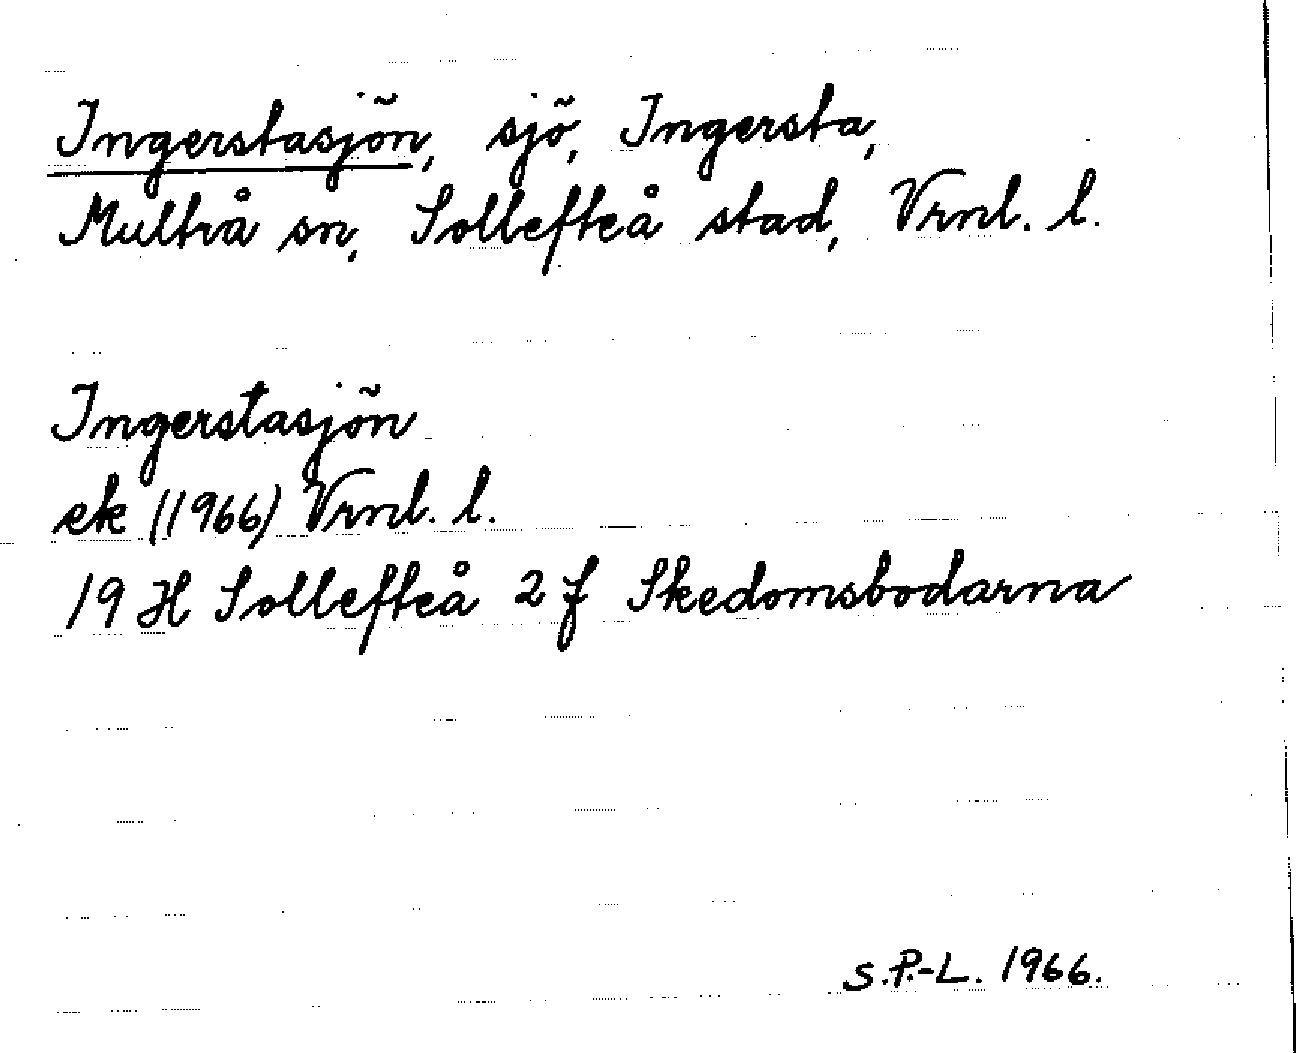 Ingerstasjön, sjö, Ingersta,
Multrå sn, Sollefteå stad, Vrnl. l.
Ingerstasjön
ek (1966) Vrnl. l.
19 H Sollefteå 2 f Skedomsbodarna
S.P.-L. 1966.